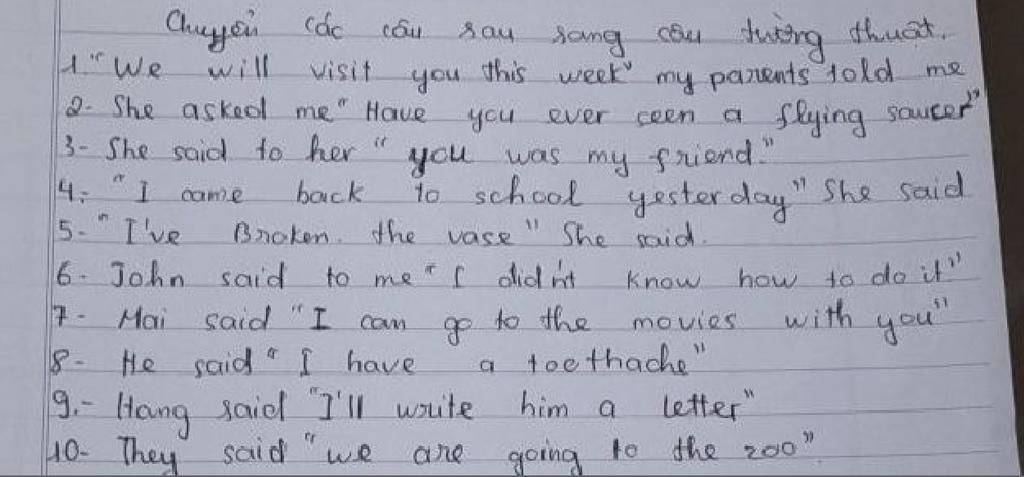 Chuyển các câu sau sang câu tường thuật.
1. "We will visit you this week" my parents told me
2- She asked me "Have you ever seen a flying saucer"
3- She said to her "you was my friend."
4- "I came back to school yesterday" She said
5- "I've Broken. the vase" She said.
6- John said to me "I didn't know how to do it"
7- Mai said "I can go to the movies with you"
8- He said "I have a toethache"
9.- Hang said "I'll write him a letter"
10- They said "we are going to the zoo"